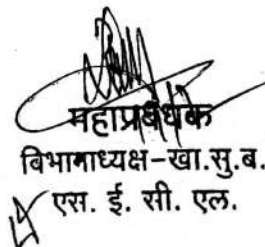 महाप्रबंधक
विभागाध्यक्ष-खा.सु.ब.
एस. ई. सी. एल.